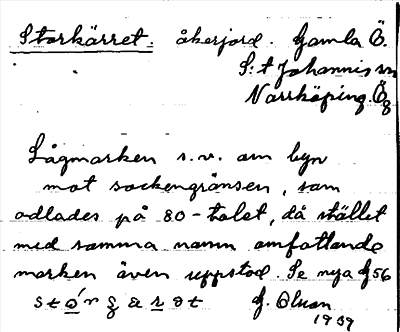 Storkärret. åkerjord. Gamla Ö.
S:t Johannis sn
Norrköping Ög
Lågmarken s.v. om byn
mot sockengränsen, som
odlades på 80-talet, då stället
med samma namn omfattande
marken även uppstod. Se nya G56
G. Olson
1939